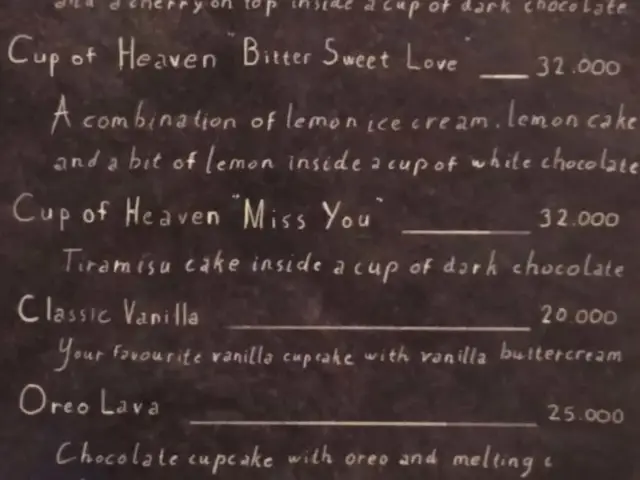 and a cherry on top inside a cup of dark chocolate
Cup of Heaven "Bitter Sweet Love" 32.000
A combination of lemon ice cream, lemon cake
and a bit of lemon inside a cup of white chocolate
Cup of Heaven "Miss You" 32.000
Tiramisu cake inside a cup of dark chocolate
Classic Vanilla 20.000
Your favourite vanilla cupcake with vanilla buttercream
Oreo Lava 25.000
Chocolate cupcake with oreo and melting